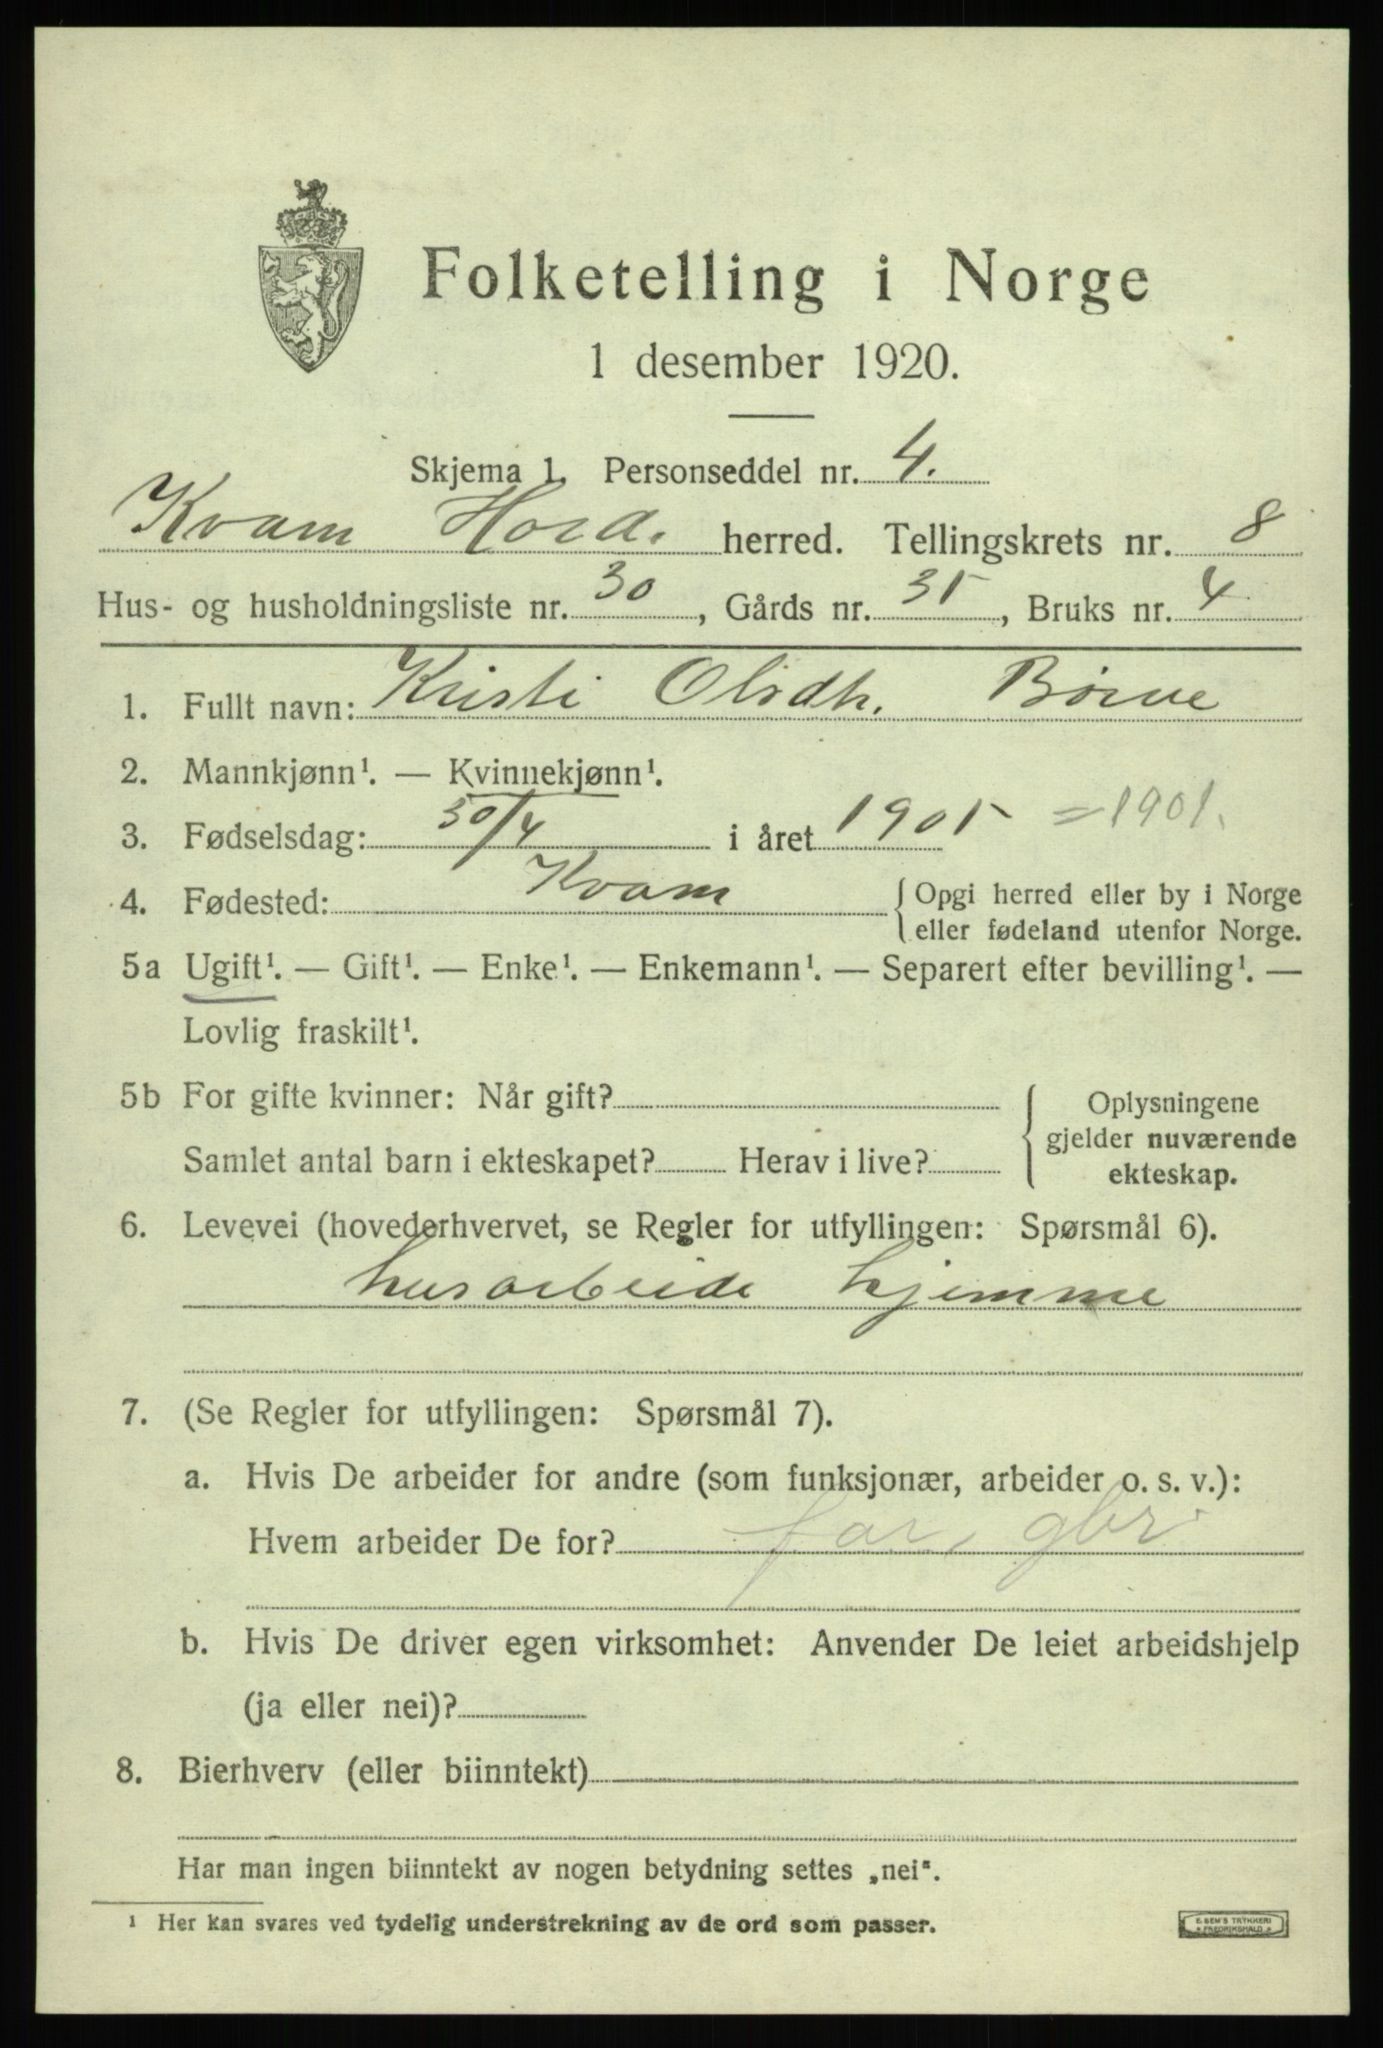 Folketelling i Norge
1 desember 1920.
Skjema 1. Personseddel nr. 4.
Kvam Hord. herred. Tellingskrets nr. 8
Hus- og husholdningsliste nr. 30, Gårds nr. 35, Bruks nr. 4
1. Fullt navn: Kristi Olsdtr. Börve
2. Mannkjønn¹. — Kvinnekjønn¹.
3. Fødselsdag: 30/4 i året 1901 = 1901.
4. Fødested: Kvam { Opgi herred eller by i Norge
eller fødeland utenfor Norge.
5a Ugift¹. — Gift¹. — Enke¹. — Enkemann¹. — Separert efter bevilling¹. —
Lovlig fraskilt¹.
5b For gifte kvinner: Når gift?
Samlet antal barn i ekteskapet? Herav i live?
{ Oplysningene
gjelder nuværende
ekteskap.
6. Levevei (hovederhvervet, se Regler for utfyllingen: Spørsmål 6).
husarbeide hjemme
7. (Se Regler for utfyllingen: Spørsmål 7).
a. Hvis De arbeider for andre (som funksjonær, arbeider o. s. v.):
Hvem arbeider De for? far, gbr.
b. Hvis De driver egen virksomhet: Anvender De leiet arbeidshjelp
(ja eller nei)?
8. Bierhverv (eller biinntekt)
Har man ingen biinntekt av nogen betydning settes „nei“.
¹ Her kan svares ved tydelig understrekning av de ord som passer.
E. SEM'S TRYKKERI
* FREDRIKSHALD *